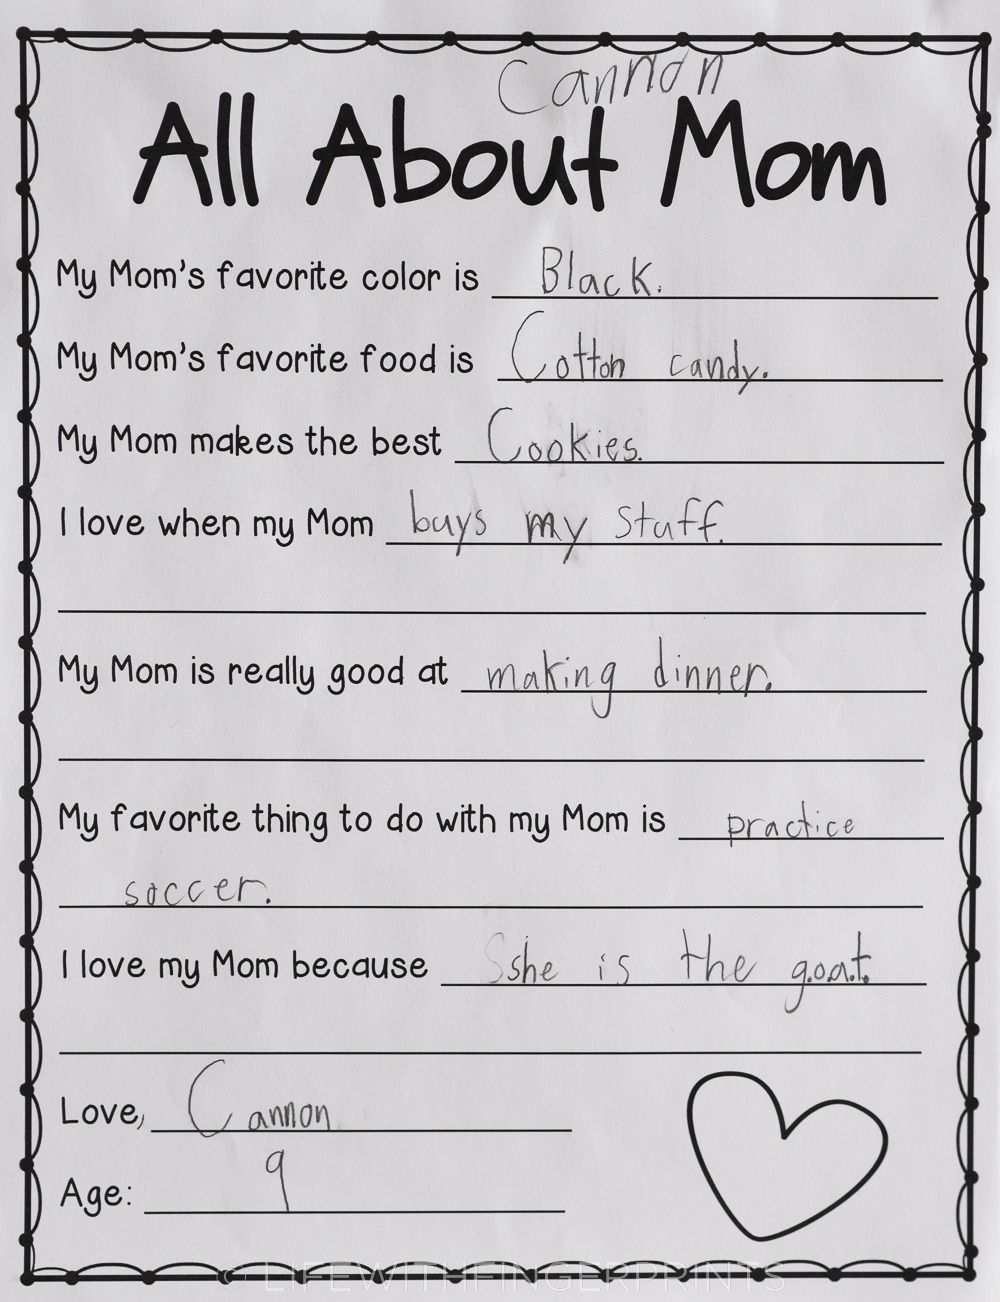 Cannon
All About Mom
My Mom's favorite color is Black.
My Mom's favorite food is Cotton candy.
My Mom makes the best Cookies.
I love when my Mom buys my stuff.
My Mom is really good at making dinner.
My favorite thing to do with my Mom is practice
soccer.
I love my Mom because Sshe is the g.o.a.t.
Love, Cannon
Age: 9
© LIFEWITHFINGERPRINTS